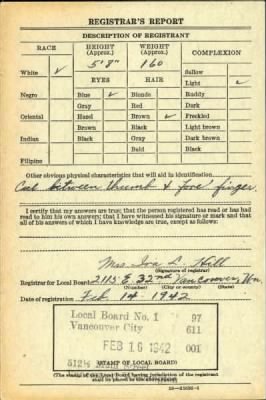 REGISTRAR'S REPORT
DESCRIPTION OF REGISTRANT
RACE HEIGHT (Approx.) WEIGHT (Approx.) COMPLEXION
5'8" 160
White ✓ Sallow
EYES HAIR Light ✓
Negro Blue ✓ Blonde Ruddy
Gray Red Dark
Oriental Hazel Brown ✓ Freckled
Brown Black Light brown
Indian Black Gray Dark brown
Bald Black
Filipino
Other obvious physical characteristics that will aid in identification
Cut between thumb & fore finger.
I certify that my answers are true; that the person registered has read or has had
read to him his own answers; that I have witnessed his signature or mark and that
all of his answers of which I have knowledge are true, except as follows:
Mrs Iva L. Hill
(Signature of registrar)
Registrar for Local Board 2115 E. 32nd Vancouver, Wn.
(Number) (City or county) (State)
Date of registration Feb 14 1942
Local Board No. 1 97
Vancouver City 611
FEB 16 1942 001
512½
(STAMP OF LOCAL BOARD)
(The stamp of the Local Board having jurisdiction of the registrant
shall be placed in the above space.)